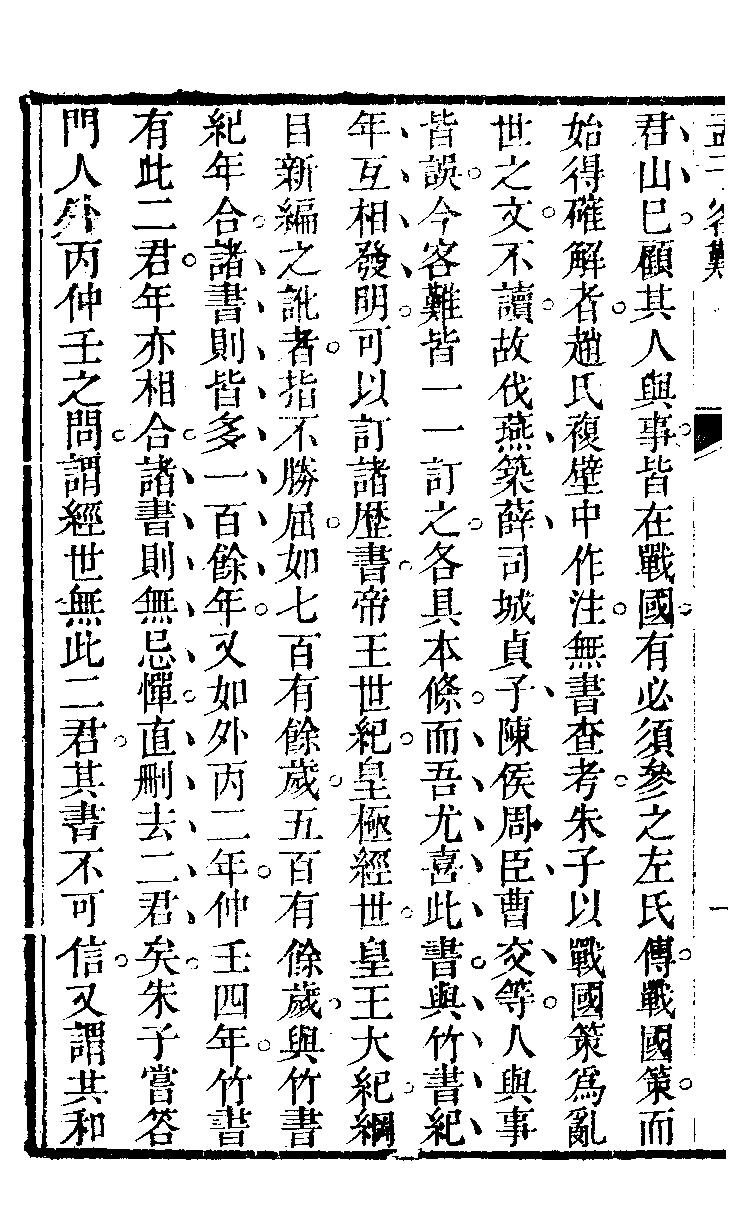 孟子客難
一
君山巳顧其人與事皆在戰國有必須參之左氏傳戰國策而
始得確解者趙氏複壁中作注無書查考朱子以戰國策爲亂
世之文不讀故伐燕築薛司城貞子陳侯周臣曹交等人與事
皆誤今客難皆一一訂之各具本條而吾尤喜此書與竹書紀
年互相發明可以訂諸歴書帝王世紀皇極經世皇王大紀綱
目新編之訛者指不勝屈如七百有餘歲五百有餘歲與竹書
紀年合諸書則皆多一百餘年又如外丙二年仲壬四年竹書
有此二君年亦相合諸書則無忌憚直刪去二君矣朱子嘗答
門人外丙仲壬之問謂經世無此二君其書不可信又謂共和